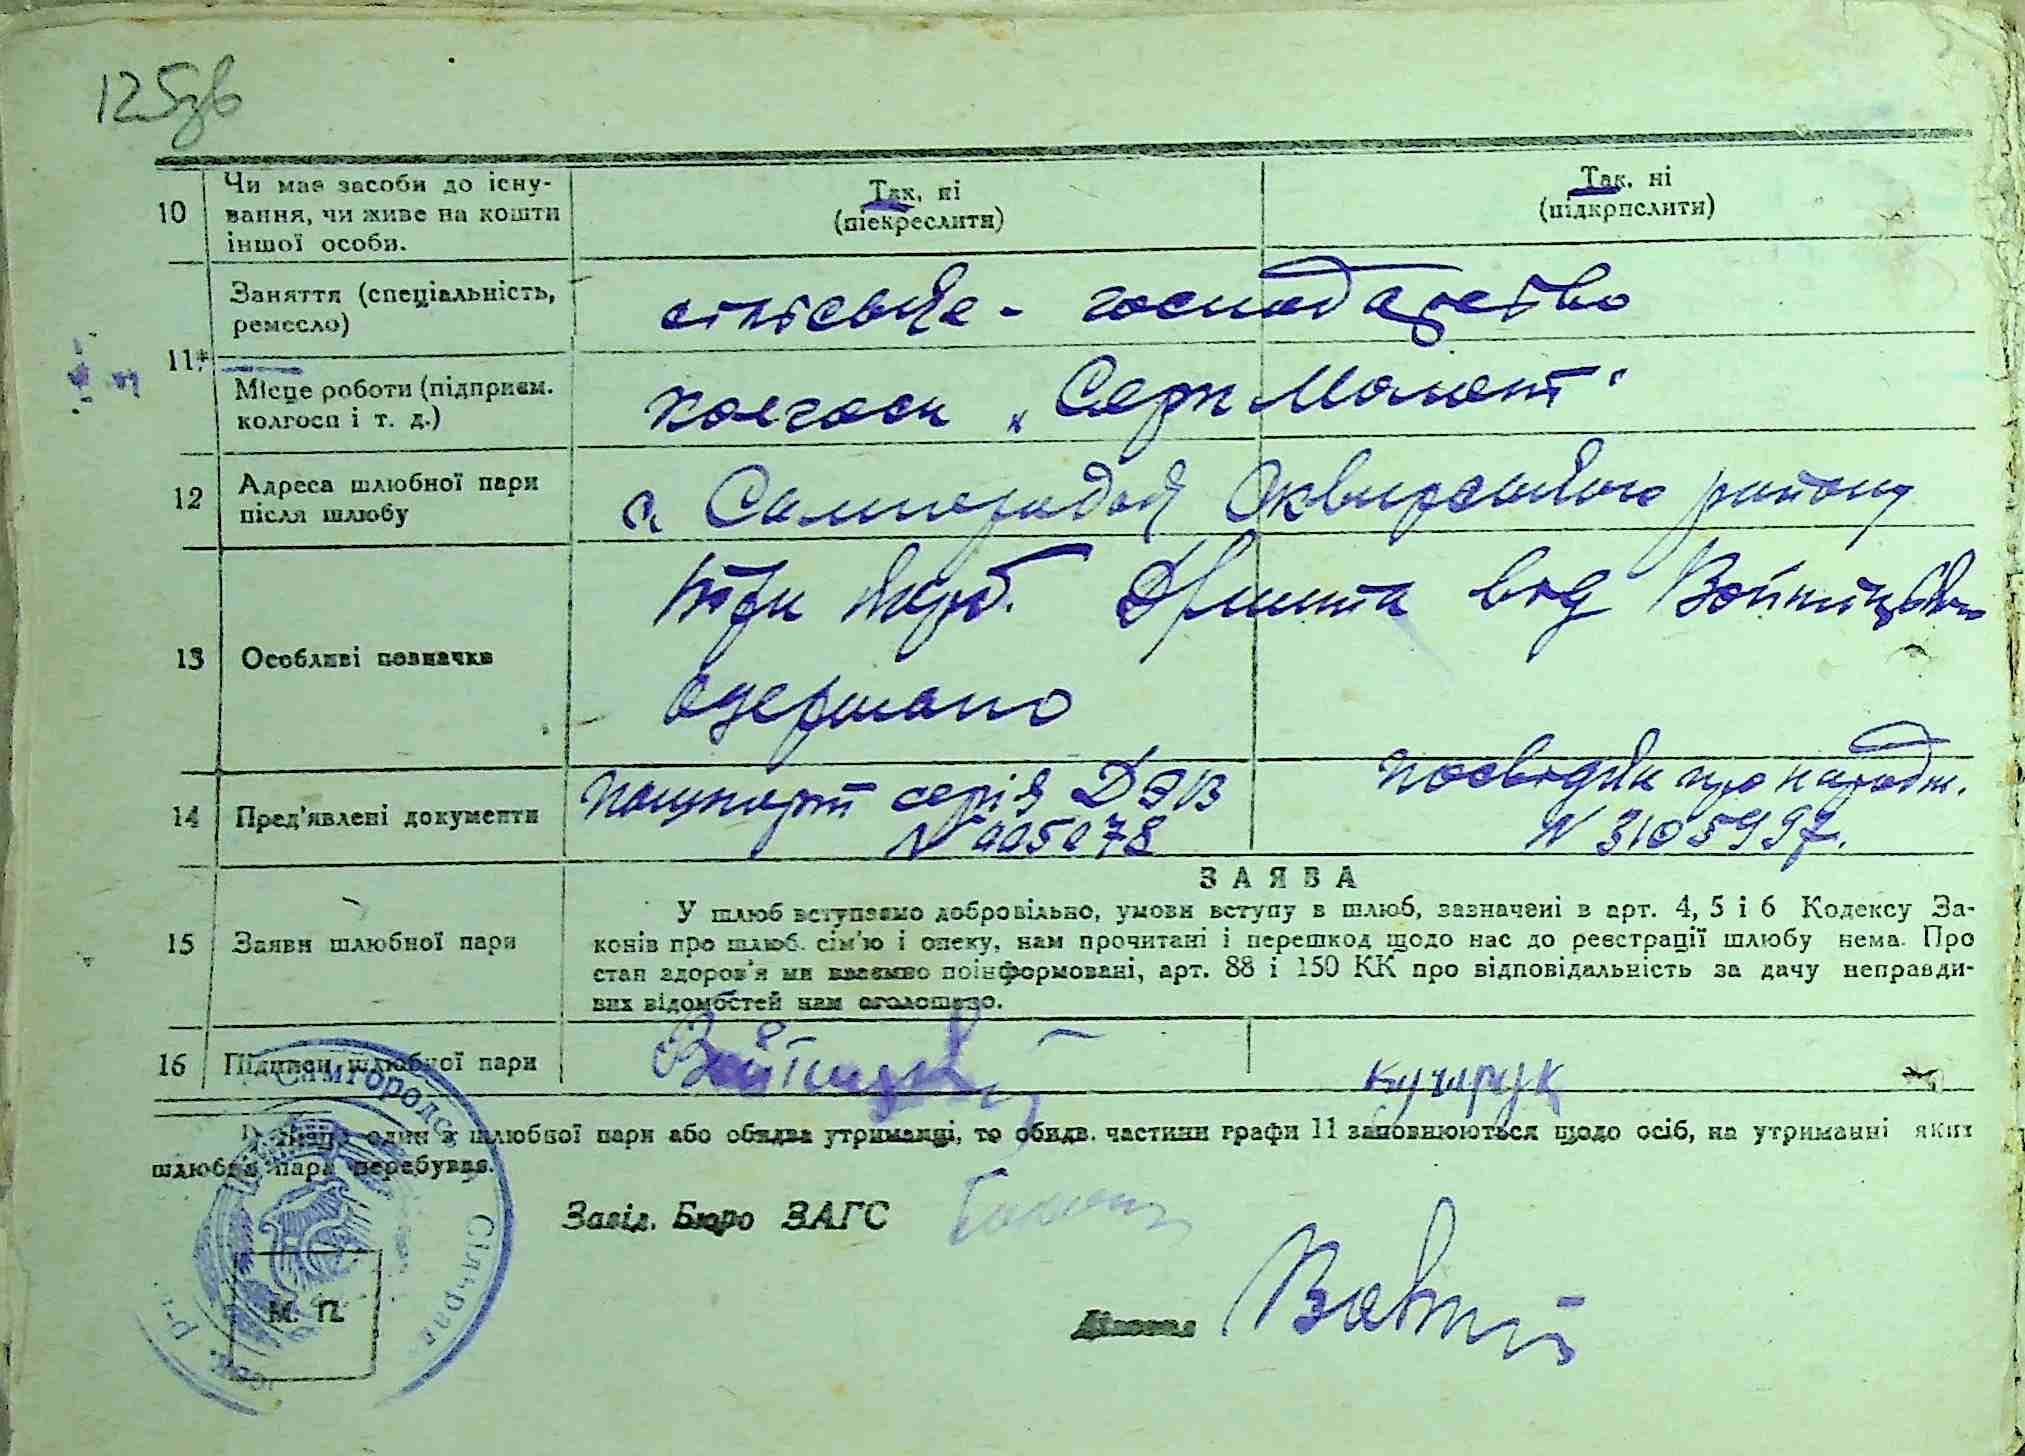 125зв
10 Чи має засоби до існу-
вання, чи живе на кошти
іншої особи.
Так, ні
(підкреслити)
Так, ні
(підкрпслити)
11*
Заняття (спеціальність,
ремесло)
сільське - господарство
Місце роботи (підприєм.
колгосп і т. д.)
колгосп „Серп Молот"
12 Адреса шлюбної пари
після шлюбу
с. Самгородок Сквирського району
13 Особливі позначки
три карб. від
одержано
14 Пред'явлені документи
пашпорт серія
посвідка про народж.
N 3105997.
ЗАЯВА
15 Заяви шлюбної пари
У шлюб вступаємо добровільно, умови вступу в шлюб, зазначені в арт. 4, 5 і 6 Кодексу За-
конів про шлюб. сім'ю і опеку, нам прочитані і перешкод щодо нас до реєстрації шлюбу нема. Про
стан здоров'я ми взаємно поінформовані, арт. 88 і 150 КК про відповідальність за дачу неправди-
вих відомостей нам оголошено.
16 Підписи шлюбної пари
Кучерук
Якщо один з шлюбної пари або обидва утриманці, то обидв. частини графи 11 заповнюються щодо осіб, на утриманні яких
шлюбна пара перебуває.
Завід. Бюро ЗАГС
Діловод
М. П.
Самгородс Сільрад